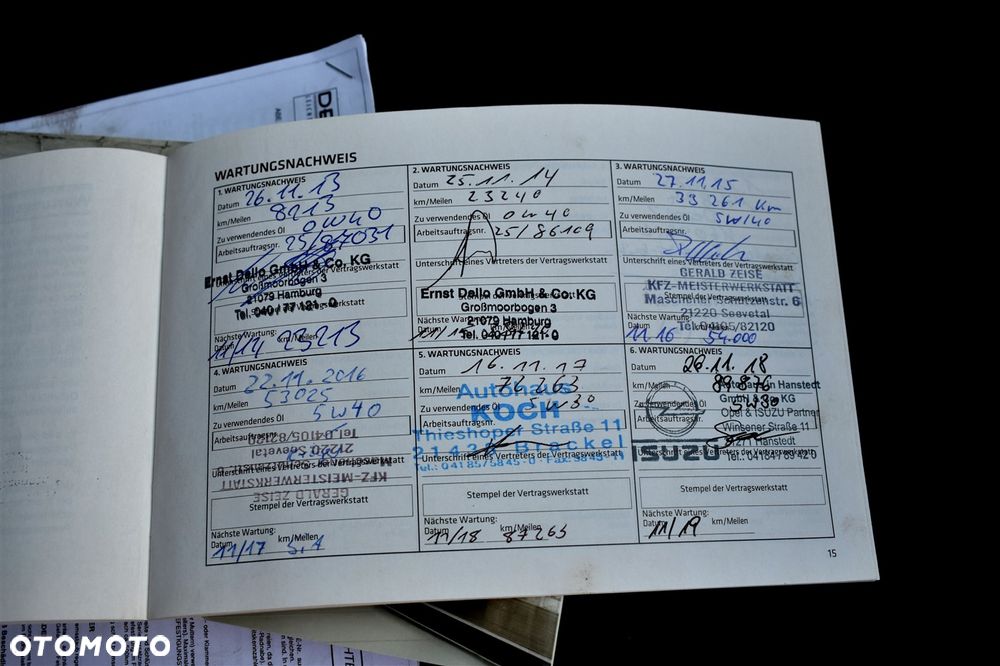 WARTUNGSNACHWEIS
1. WARTUNGSNACHWEIS
Datum 26.11.13
km/Meilen 8213
Zu verwendendes Öl 0W40
Arbeitsauftragsnr. 25/87031
Ernst Dello GmbH & Co. KG
Großmoorbogen 3
21079 Hamburg
Tel. 040 / 77 121 - 0
Nächste Wartung:
Datum 11/14 km/Meilen 23213
2. WARTUNGSNACHWEIS
Datum 25.11.14
km/Meilen 23240
Zu verwendendes Öl 0W40
Arbeitsauftragsnr. 25/86109
Unterschrift eines Vertreters der Vertragswerkstatt
Ernst Dello GmbH & Co. KG
Großmoorbogen 3
21079 Hamburg
Tel. 040 / 77 121 - 0
3. WARTUNGSNACHWEIS
Datum 27.11.15
km/Meilen 33 261 Km
Zu verwendendes Öl 5W40
Arbeitsauftragsnr.
Unterschrift eines Vertreters der Vertragswerkstatt
GERALD ZEISE
KFZ-MEISTERWERKSTATT
Maschener Schützenstr. 6
21220 Seevetal
Tel. 04105/82120
Stempel der Vertragswerkstatt
Nächste Wartung:
Datum 11.16 km/Meilen 54.000
4. WARTUNGSNACHWEIS
Datum 22.11.2016
km/Meilen 53025
Zu verwendendes Öl 5W40
Arbeitsauftragsnr.
Tel. 04105/82120
21220 Seevetal
Unterschrift eines Vertreters der Vertragswerkstatt
KFZ-MEISTERWERKSTATT
GERALD ZEISE
Stempel der Vertragswerkstatt
Nächste Wartung:
Datum 11/17 km/Meilen
5. WARTUNGSNACHWEIS
Datum 16.11.17
km/Meilen 72263
Zu verwendendes Öl 5W30
Autohaus
KOCH
Arbeitsauftragsnr.
Thieshoper Straße 11
Brackel
Unterschrift eines Vertreters der Vertragswerkstatt
Stempel der Vertragswerkstatt
Nächste Wartung:
Datum 11/18 km/Meilen 87263
6. WARTUNGSNACHWEIS
Datum 20.11.18
km/Meilen
Zu verwendendes Öl 5W30
Hanstedt
GmbH & Co KG
Opel & ISUZU Partner
Winsener Straße 11
21271 Hanstedt
Arbeitsauftragsnr.
ISUZU
Unterschrift eines Vertreters der Vertragswerkstatt
Stempel der Vertragswerkstatt
Nächste Wartung:
Datum 11/19 km/Meilen
15
OTOMOTO